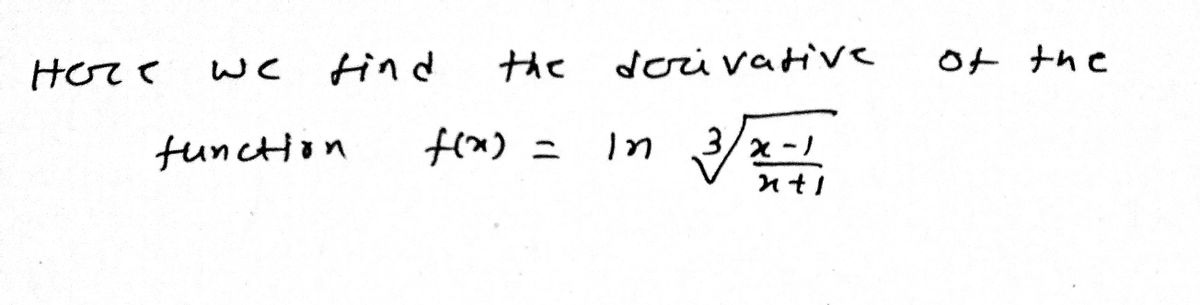 Here we find the derivative of the
function f(x) = ln ∛((x-1)/(x+1))